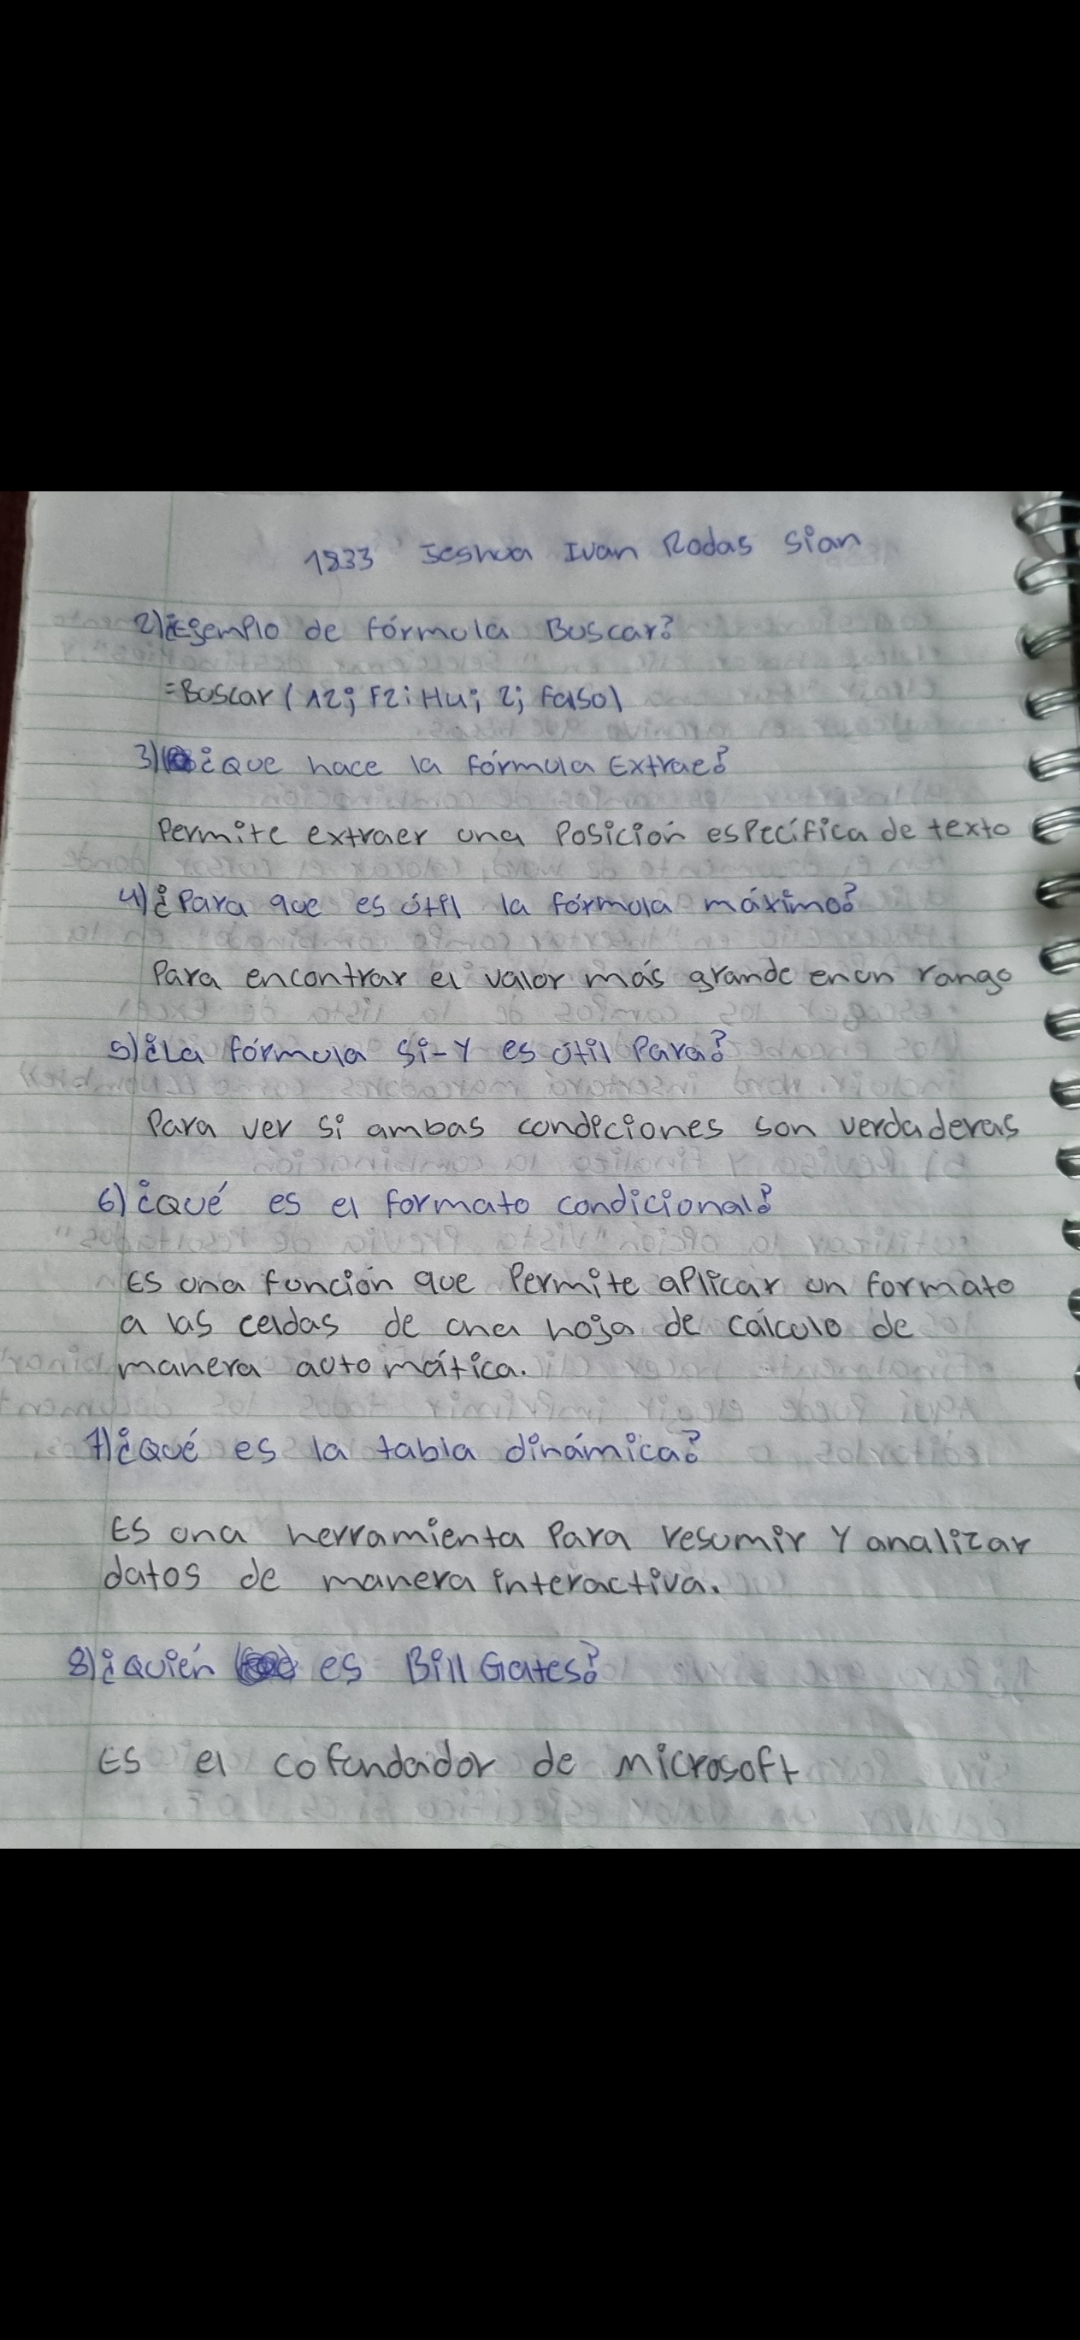 1833 Jeshua Ivan Rodas Sian
2) ¿Ejemplo de fórmula Buscar?
=Buscar (A2; F2:H4; 2; Falso)
3) ¿Que hace la fórmula Extrae?
Permite extraer una Posición específica de texto
4) ¿Para que es útil la fórmula máximo?
Para encontrar el valor más grande en un rango
5) ¿La fórmula Si-Y es útil Para?
Para ver si ambas condiciones son verdaderas
6) ¿Qué es el formato condicional?
Es una función que Permite aplicar un formato
a las celdas de una hoja de cálculo de
manera automática.
7) ¿Qué es la tabla dinámica?
Es una herramienta Para resumir y analizar
datos de manera interactiva.
8) ¿Quién es Bill Gates?
Es el cofundador de Microsoft